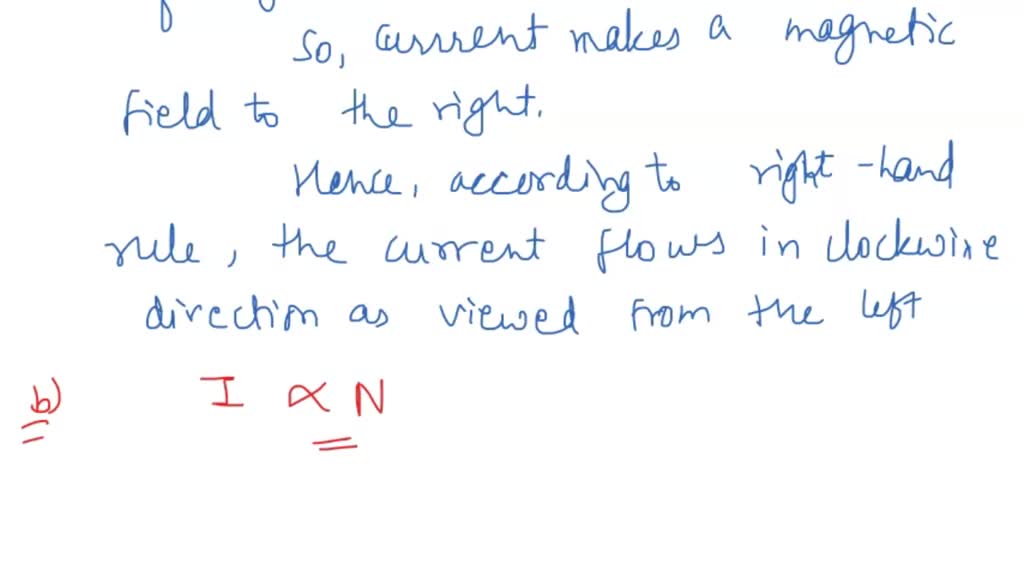 So, current makes a magnetic
field to the right.
Hence, according to right-hand
rule, the current flows in clockwise
direction as viewed from the left
b) I ∝ N